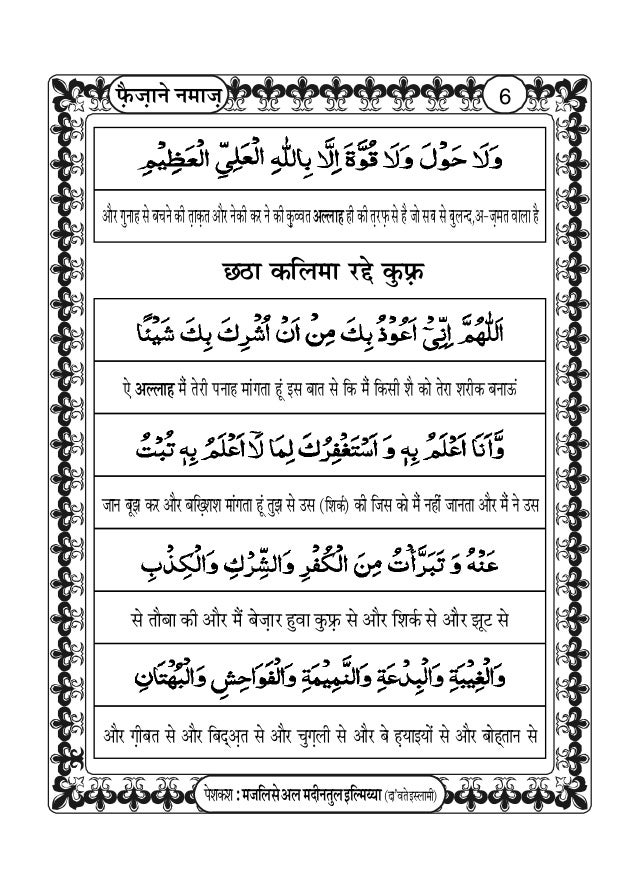 फ़ैज़ाने नमाज़
6
وَلَا حَوْلَ وَلَا قُوَّةَ اِلَّا بِاللّٰهِ الْعَلِيِّ الْعَظِيْمِ
और गुनाह से बचने की ता़क़त और नेकी कर ने की कु़व्वत अल्लाह ही की त़रफ़ से है जो सब से बुलन्द,अ-ज़मत वाला है
छठा कलिमा रद्दे कुफ़्र
اَللّٰهُمَّ اِنِّيْٓ اَعُوْذُ بِكَ مِنْ اَنْ اُشْرِكَ بِكَ شَيْئًا
ऐ अल्लाह मैं तेरी पनाह मांगता हूं इस बात से कि मैं किसी शै को तेरा शरीक बनाऊं
وَّاَنَا اَعْلَمُ بِهٖ وَ اَسْتَغْفِرُكَ لِمَا لَآ اَعْلَمُ بِهٖ تُبْتُ
जान बूझ कर और बख़्शिश मांगता हूं तुझ से उस (शिर्क) की जिस को मैं नहीं जानता और मैं ने उस
عَنْهُ وَ تَبَرَّأْتُ مِنَ الْكُفْرِ وَالشِّرْكِ وَالْكِذْبِ
से तौबा की और मैं बेज़ार हुवा कुफ़्र से और शिर्क से और झूट से
وَالْغِيْبَةِ وَالْبِدْعَةِ وَالنَّمِيْمَةِ وَالْفَوَاحِشِ وَالْبُهْتَانِ
और ग़ीबत से और बिद्अ़त से और चुग़ली से और बे ह़याइयों से और बोह्तान से
पेशकश : मजलिसे अल मदीनतुल इल्मिय्या (दा'वते इस्लामी)